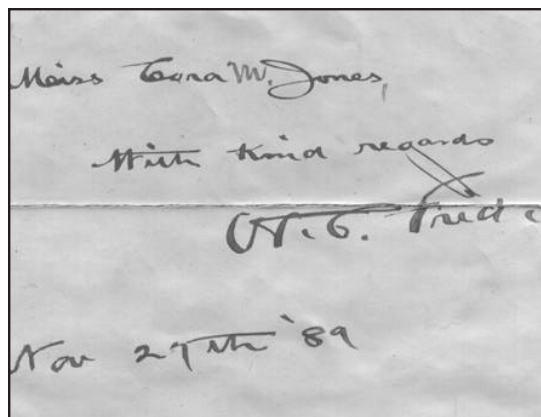 Miss Cora M. Jones,
With kind regards
Nov 27th '89